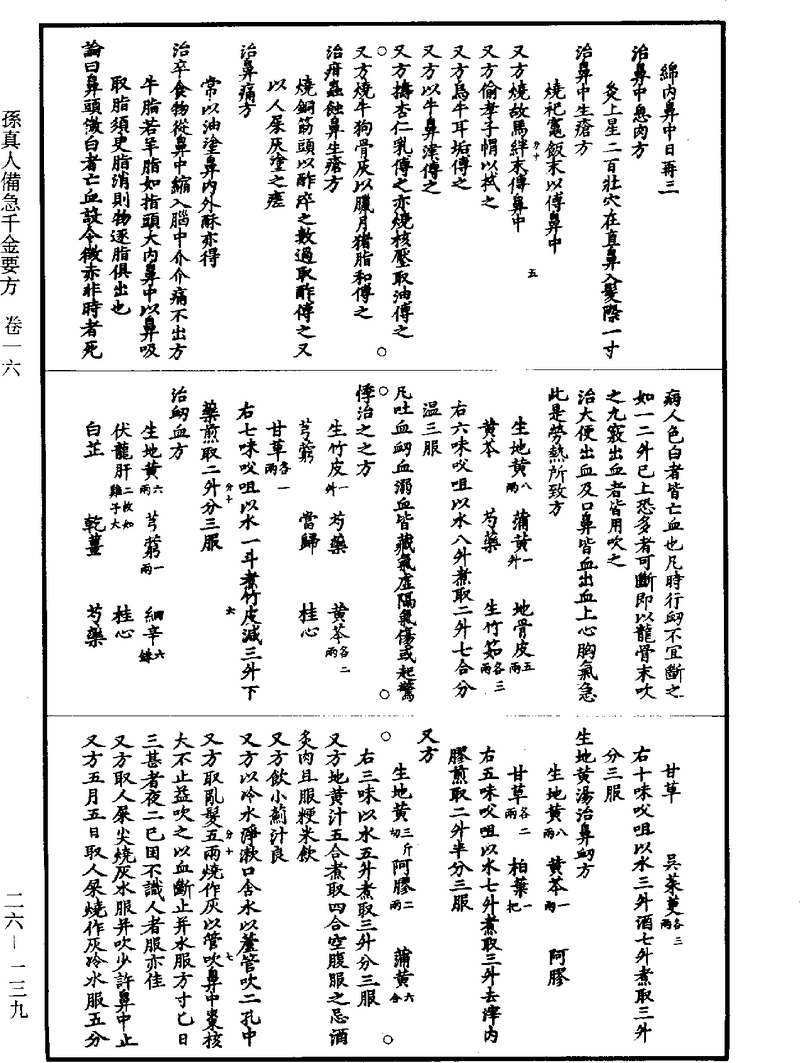 孫真人備急千金要方　卷一六
二六—一三九
綿內鼻中日再三
治鼻中息肉方
灸上星二百壯穴在直鼻入髮際一寸
治鼻中生瘡方
燒祀竈飯末以傅鼻中
又方燒故馬絆末傅鼻中
又方偷孝子帽以拭之
又方烏牛耳垢傅之
又方以牛鼻津傅之
又方擣杏仁乳傅之亦燒核壓取油傅之
又方燒牛狗骨灰以臘月猪脂和傅之
治疳蟲蝕鼻生瘡方
燒銅筋頭以酢淬之數過取酢傅之又
以人屎灰塗之瘥
治鼻痛方
常以油塗鼻內外酥亦得
治卒食物從鼻中縮入腦中介介痛不出方
牛脂若羊脂如指頭大內鼻中以鼻吸
取脂須臾脂消則物逐脂俱出也
論曰鼻頭微白者亡血設令微赤非時者死
病人色白者皆亡血也凡時行衂不宜斷之
如一二升已上恐多者可斷即以龍骨末吹
之九竅出血者皆用吹之
治大便出血及口鼻皆血出血上心胸氣急
此是勞熱所致方
生地黃八兩　蒲黃一升　地骨皮五兩
黃芩　芍藥　生竹茹各三兩
右六味㕮咀以水八升煮取二升七合分
溫三服
凡吐血衂血溺血皆藏氣虛隔氣傷或起驚
悸治之之方
生竹皮一升　芍藥　黃芩各二兩
芎藭　當歸　桂心
甘草各一兩
右七味㕮咀以水一斗煮竹皮減三升下
藥煎取二升分三服
治衂血方
生地黃六兩　芎藭一兩　細辛六銖
伏龍肝二枚如雞子大　桂心
白芷　乾薑　芍藥
甘草　吳茱萸各三兩
右十味㕮咀以水三升酒七升煮取三升
分三服
生地黃湯治鼻衂方
生地黃八兩　黃芩一兩　阿膠
甘草各二兩　柏葉一把
右五味㕮咀以水七升煮取三升去滓內
膠煎取二升半分三服
又方
生地黃三斤切　阿膠二兩　蒲黃六合
右三味以水五升煮取三升分三服
又方地黃汁五合煮取四合空腹服之忌酒
炙肉且服粳米飲
又方飲小薊汁良
又方以冷水淨漱口含水以蘆管吹二孔中
又方取亂髮五兩燒作灰以管吹鼻中棗核
大不止益吹之以血斷止并水服方寸匕日
三甚者夜二已困不識人者服亦佳
又方取人屎尖燒灰水服并吹少許鼻中止
又方五月五日取人屎燒作灰冷水服五分